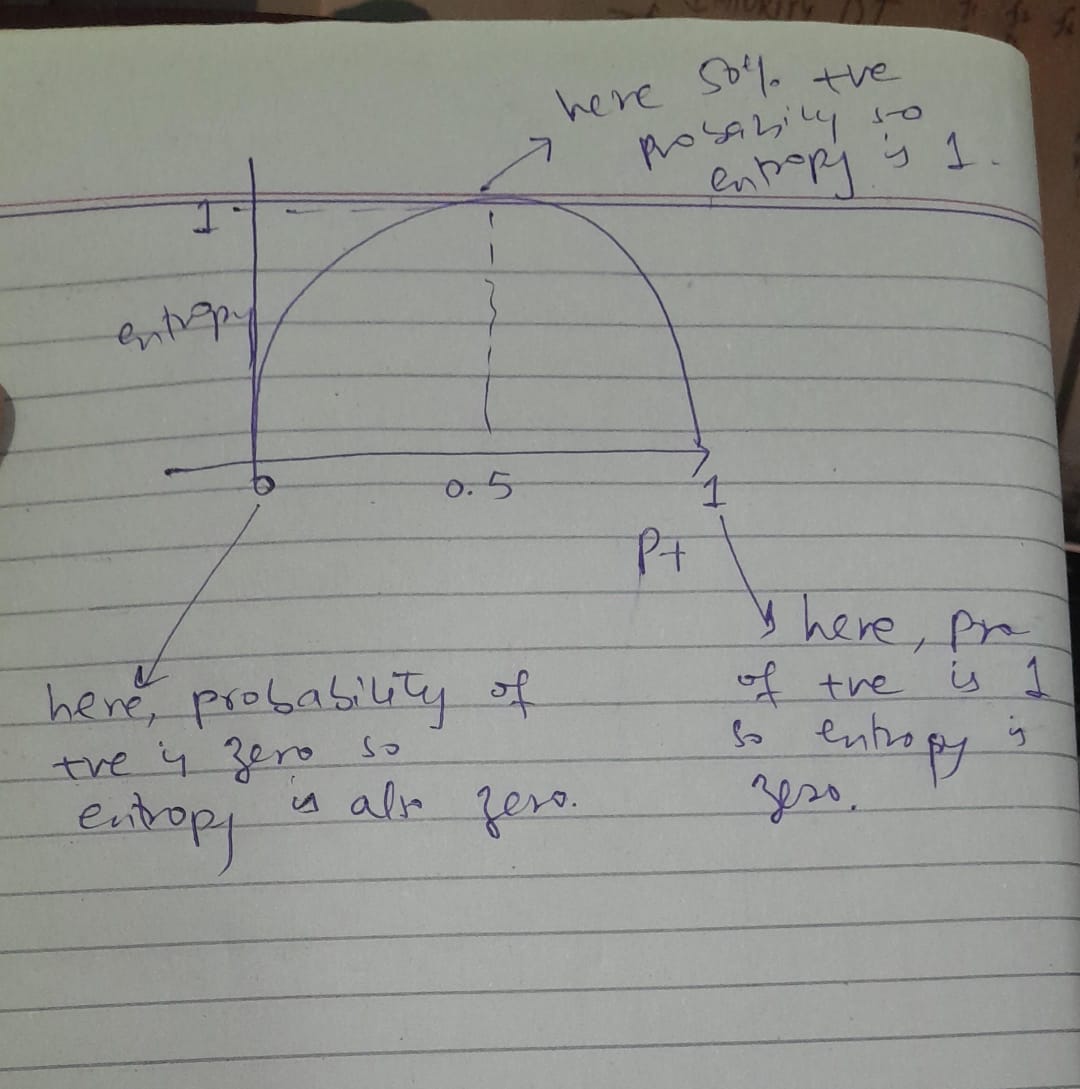 here 50% +ve
probability so
entropy is 1.
1
entropy
0
0.5
1
P+
here, probability of
+ve is zero so
entropy is also zero.
here, pro
of +ve is 1
so entropy is
zero.